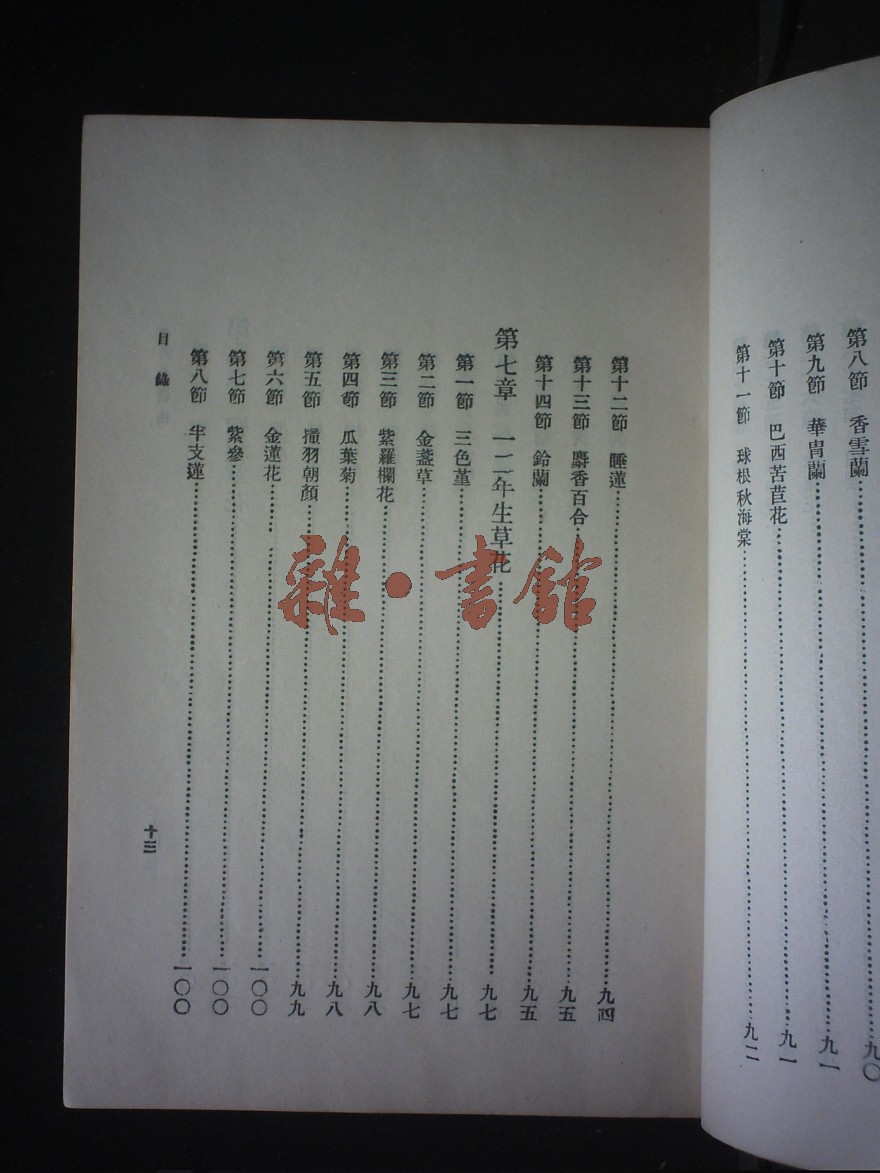 第八節　香雪蘭……九〇
第九節　華胄蘭……九一
第十節　巴西苦苣花……九一
第十一節　球根秋海棠……九二
第十二節　睡蓮……九四
第十三節　麝香百合……九五
第十四節　鈴蘭……九五
第七章　一二年生草花……九七
第一節　三色堇……九七
第二節　金盞草……九七
第三節　紫羅欄花……九八
第四節　瓜葉菊……九八
第五節　撞羽朝顏……九九
第六節　金蓮花……一〇〇
第七節　紫參……一〇〇
第八節　半支蓮……一〇〇
目錄
十三
雜·書館